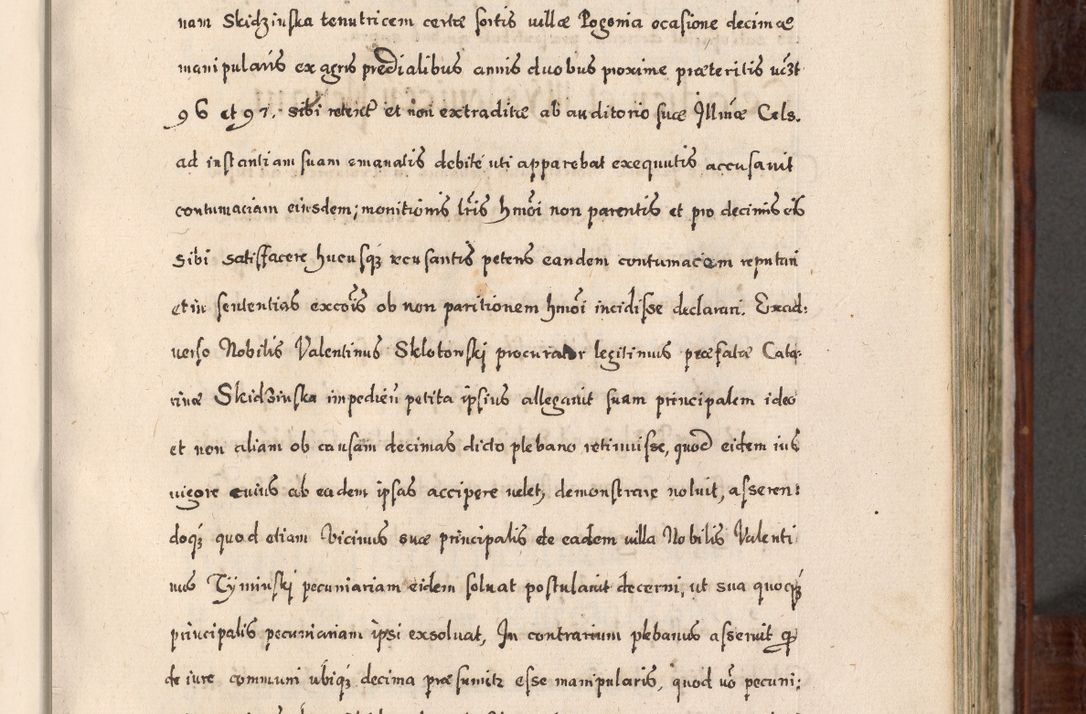 nam Skidzinska tenutricem certæ sortis villæ Pogonia ocasione decimæ
manipularis ex agris predialibus annis duobus proxime præteritis
96 et 97. sibi retent et non extraditæ ab auditorio suæ Illmæ Cels.
ad instantiam suam emanatis debite uti apparebat exequutis accusavit
contumaciam eiusdem; monitionis lris hmoi non parentis et pro decimis eis
sibi satisfacere hucusq3 recusantis petens eandem contumacem reputari
et in sententias excois ob non paritionem hmoi incidisse declarari. Exad:
verso Nobilis Valentinus Sklotowskj procurator legitimus præfatæ Cata-
rinæ Skidzinska impedien petita ipsius allegavit suam principalem ideo
et non aliam ob causam decimas dicto plebano retinuisse, quod eidem ius
vigore cuius ab eadem ipsas accipere velet, demonstrare noluit, asseren:
doq3 quod etiam Vicinus suæ principalis de eadem villa Nobilis Valenti
nus Tyminskj pecuniariam eidem solvat postulavit decerni, ut sua quoq3
principalis pecuniariam ipsi exsolvat, In contrarium plebanus asseruit
de iure communi ubiq3 decima præsumitr esse manipularis, quod vo pecuni: